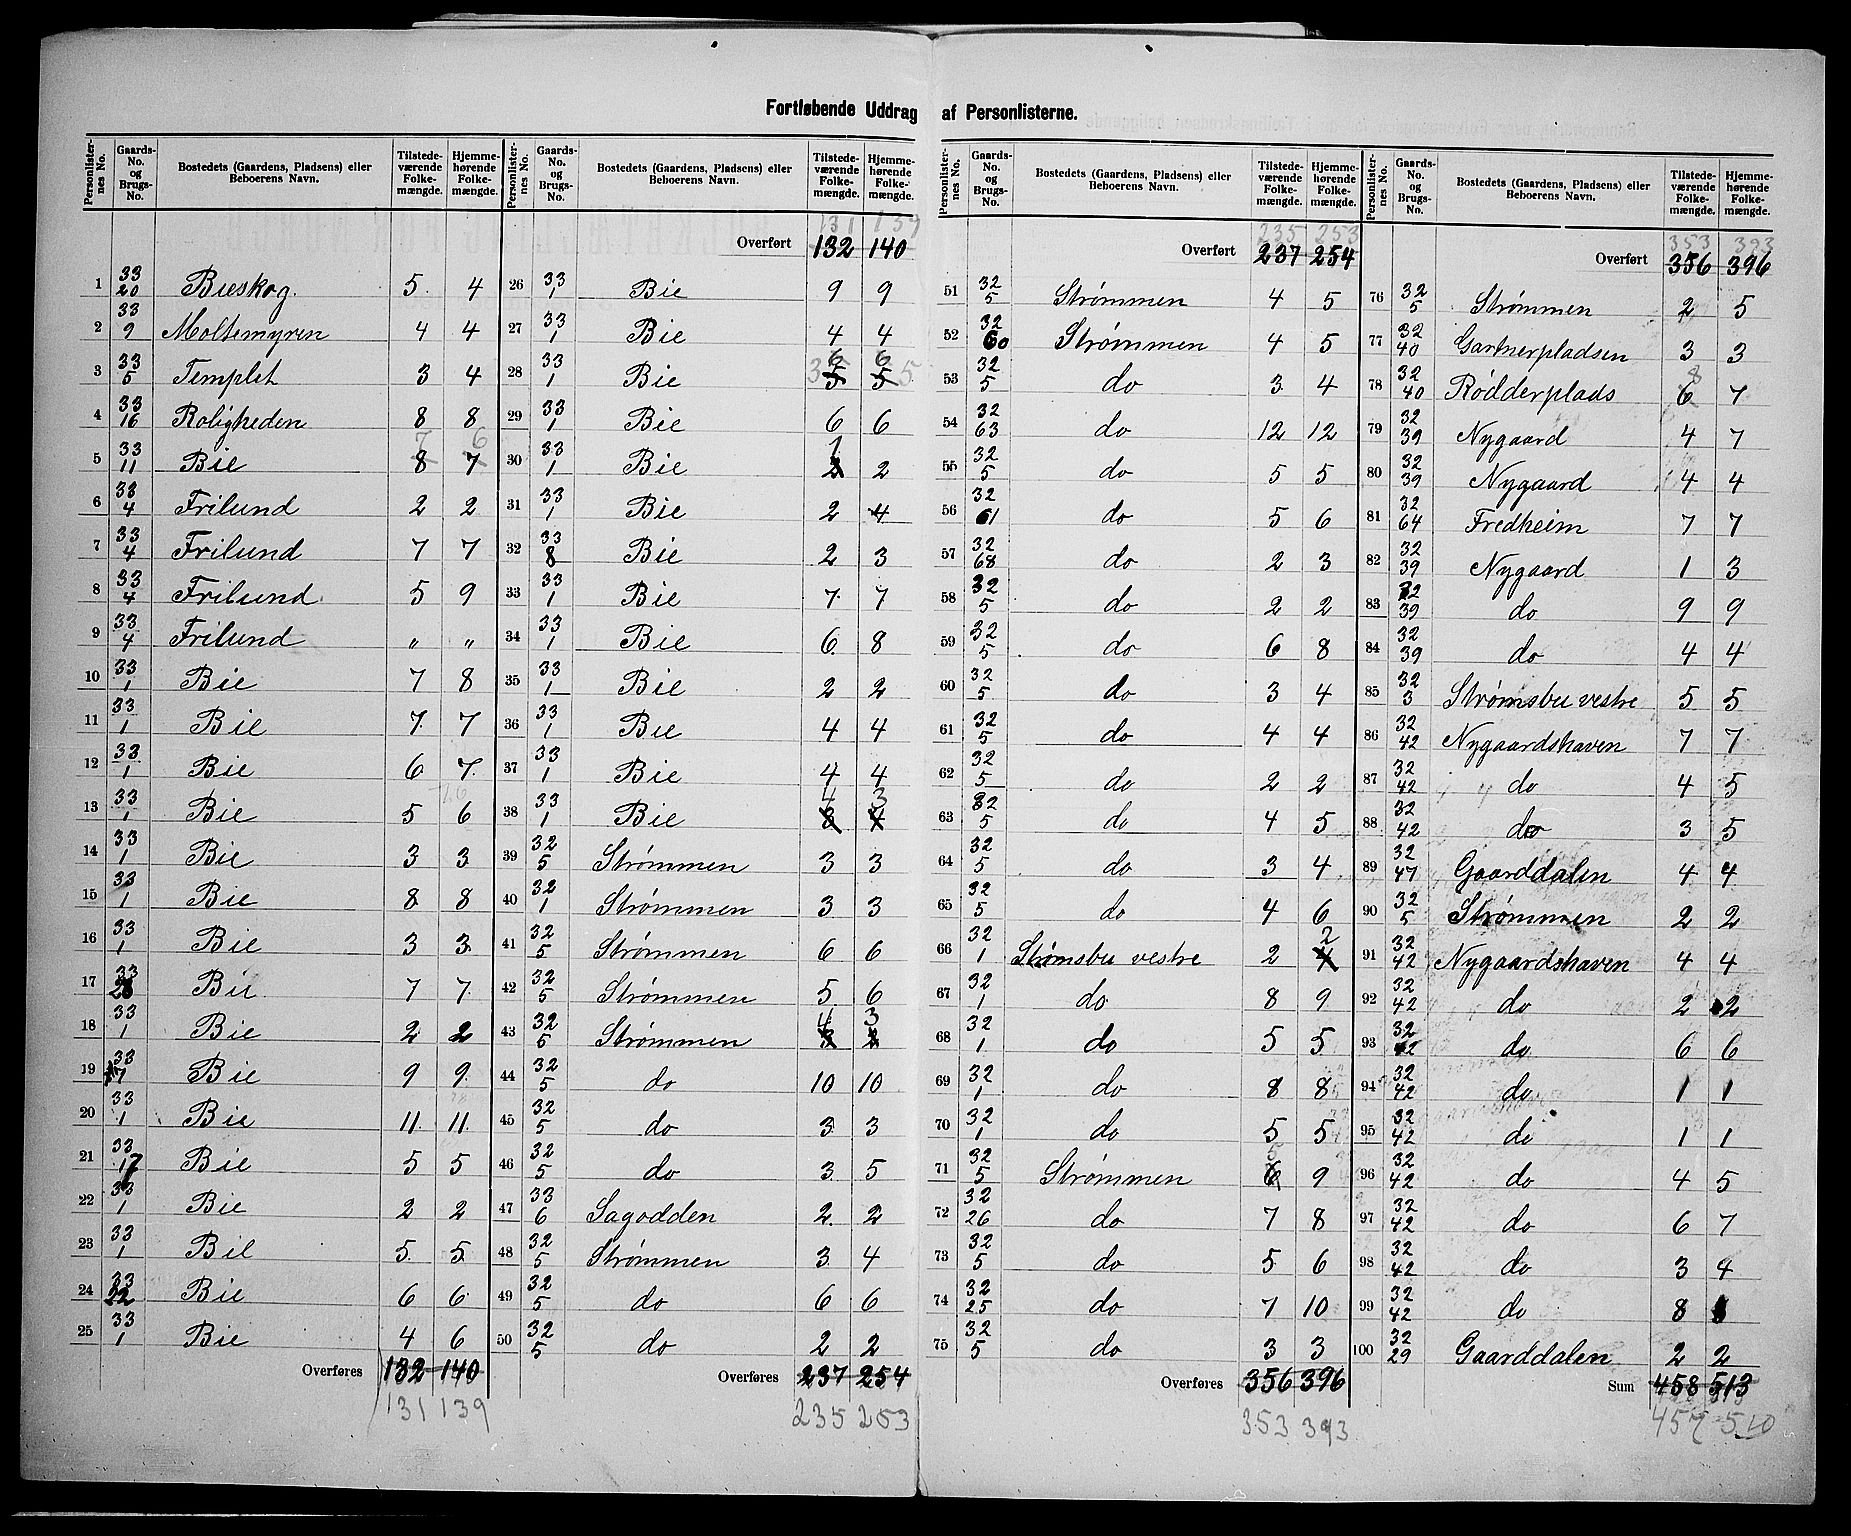 Fortløbende Uddrag af Personlisterne.
Personlisternes No. | Gaards-No. og Brugs-No. | Bostedets (Gaardens, Pladsens) eller Beboerens Navn. | Tilstedeværende Folkemængde. | Hjemmehørende Folkemængde.
1 33/20 Bieskog. 5 4
2 33/9 Moltemyren 4 4
3 33/5 Templet 3 4
4 33/16 Roligheden 8 8
5 33/11 Bie 8 7 7 6
6 33/4 Frilund 2 2
7 33/4 Frilund 7 7
8 33/4 Frilund 5 9
9 33/4 Frilund " "
10 33/1 Bie 7 8
11 33/1 Bie 7 7
12 33/1 Bie 6 7
13 33/1 Bie 5 6
14 33/1 Bie 3 3
15 33/1 Bie 8 8
16 33/1 Bie 3 3
17 33/28 Bie 7 7
18 33/1 Bie 2 2
19 33/17 Bie 9 9
20 33/1 Bie 11 11
21 33/17 Bie 5 5
22 33/1 Bie 2 2
23 33/1 Bie 5 5
24 33/22 Bie 6 6
25 33/1 Bie 4 6
Overføres 132 140
131 139
Personlisternes No. | Gaards-No. og Brugs-No. | Bostedets (Gaardens, Pladsens) eller Beboerens Navn. | Tilstedeværende Folkemængde. | Hjemmehørende Folkemængde.
131 139
Overført 132 140
26 33/1 Bie 9 9
27 33/1 Bie 4 4
28 33/1 Bie 5 5 6 6
29 33/1 Bie 6 6
30 33/1 Bie 1 2
31 33/1 Bie 2 4
32 33/8 Bie 2 3
33 33/1 Bie 7 7
34 33/1 Bie 6 8
35 33/1 Bie 2 2
36 33/1 Bie 4 4
37 33/1 Bie 4 4
38 33/1 Bie 3 4 4 3
39 32/5 Strømmen 3 3
40 32/1 Strømmen 3 3
41 32/5 Strømmen 6 6
42 32/5 Strømmen 5 6
43 32/5 Strømmen 4 3
44 32/5 do 10 10
45 32/5 do 3 3
46 32/5 do 3 5
47 33/6 Sagodden 2 2
48 32/5 Strømmen 3 4
49 32/5 do 6 6
50 32/5 do 2 2
Overføres 237 254
235 253
Personlisternes No. | Gaards-No. og Brugs-No. | Bostedets (Gaardens, Pladsens) eller Beboerens Navn. | Tilstedeværende Folkemængde. | Hjemmehørende Folkemængde.
235 253
Overført 237 254
51 32/5 Strømmen 4 5
52 32/60 Strømmen 4 5
53 32/5 do 3 4
54 32/63 do 12 12
55 32/5 do 5 5
56 32/61 do 5 6
57 32/68 do 2 3
58 32/5 do 2 2
59 32/5 do 6 8
60 32/5 do 3 4
61 32/5 do 4 4
62 32/5 do 2 2
63 32/5 do 4 5
64 32/5 do 3 4
65 32/5 do 4 6
66 32/1 Strømsbu vestre 2 4 2
67 32/1 do 8 9
68 32/1 do 5 5
69 32/1 do 8 8
70 32/1 do 5 5
71 32/5 Strømmen 6 9 5
72 32/26 do 7 8
73 32/5 do 5 6
74 32/25 do 7 10
75 32/5 do 3 3
Overføres 356 396
353 393
Personlisternes No. | Gaards-No. og Brugs-No. | Bostedets (Gaardens, Pladsens) eller Beboerens Navn. | Tilstedeværende Folkemængde. | Hjemmehørende Folkemængde.
353 393
Overført 356 396
76 32/5 Strømmen 2 5
77 32/40 Gartnerpladsen 3 3
78 32/40 Rødderplads 6 7 8
79 32/39 Nygaard 4 7
80 32/39 Nygaard 4 4
81 32/64 Fredheim 7 7
82 32/39 Nygaard 1 3
83 32/39 do 9 9
84 32/39 do 4 4
85 32/3 Strømsbu vestre 5 5
86 32/42 Nygaardshaven 7 7
87 32/42 do 4 5
88 32/42 do 3 5
89 32/47 Gaarddalen 4 4
90 32/5 Strømmen 2 2
91 32/42 Nygaardshaven 4 4
92 32/42 do 2 2
93 32/42 do 6 6
94 32/42 do 1 1
95 32/42 do 1 1
96 32/42 do 4 5
97 32/42 do 6 7
98 32/42 do 3 4
99 32/42 do 8
100 32/29 Gaarddalen 2 2
Sum 458 513
457 510